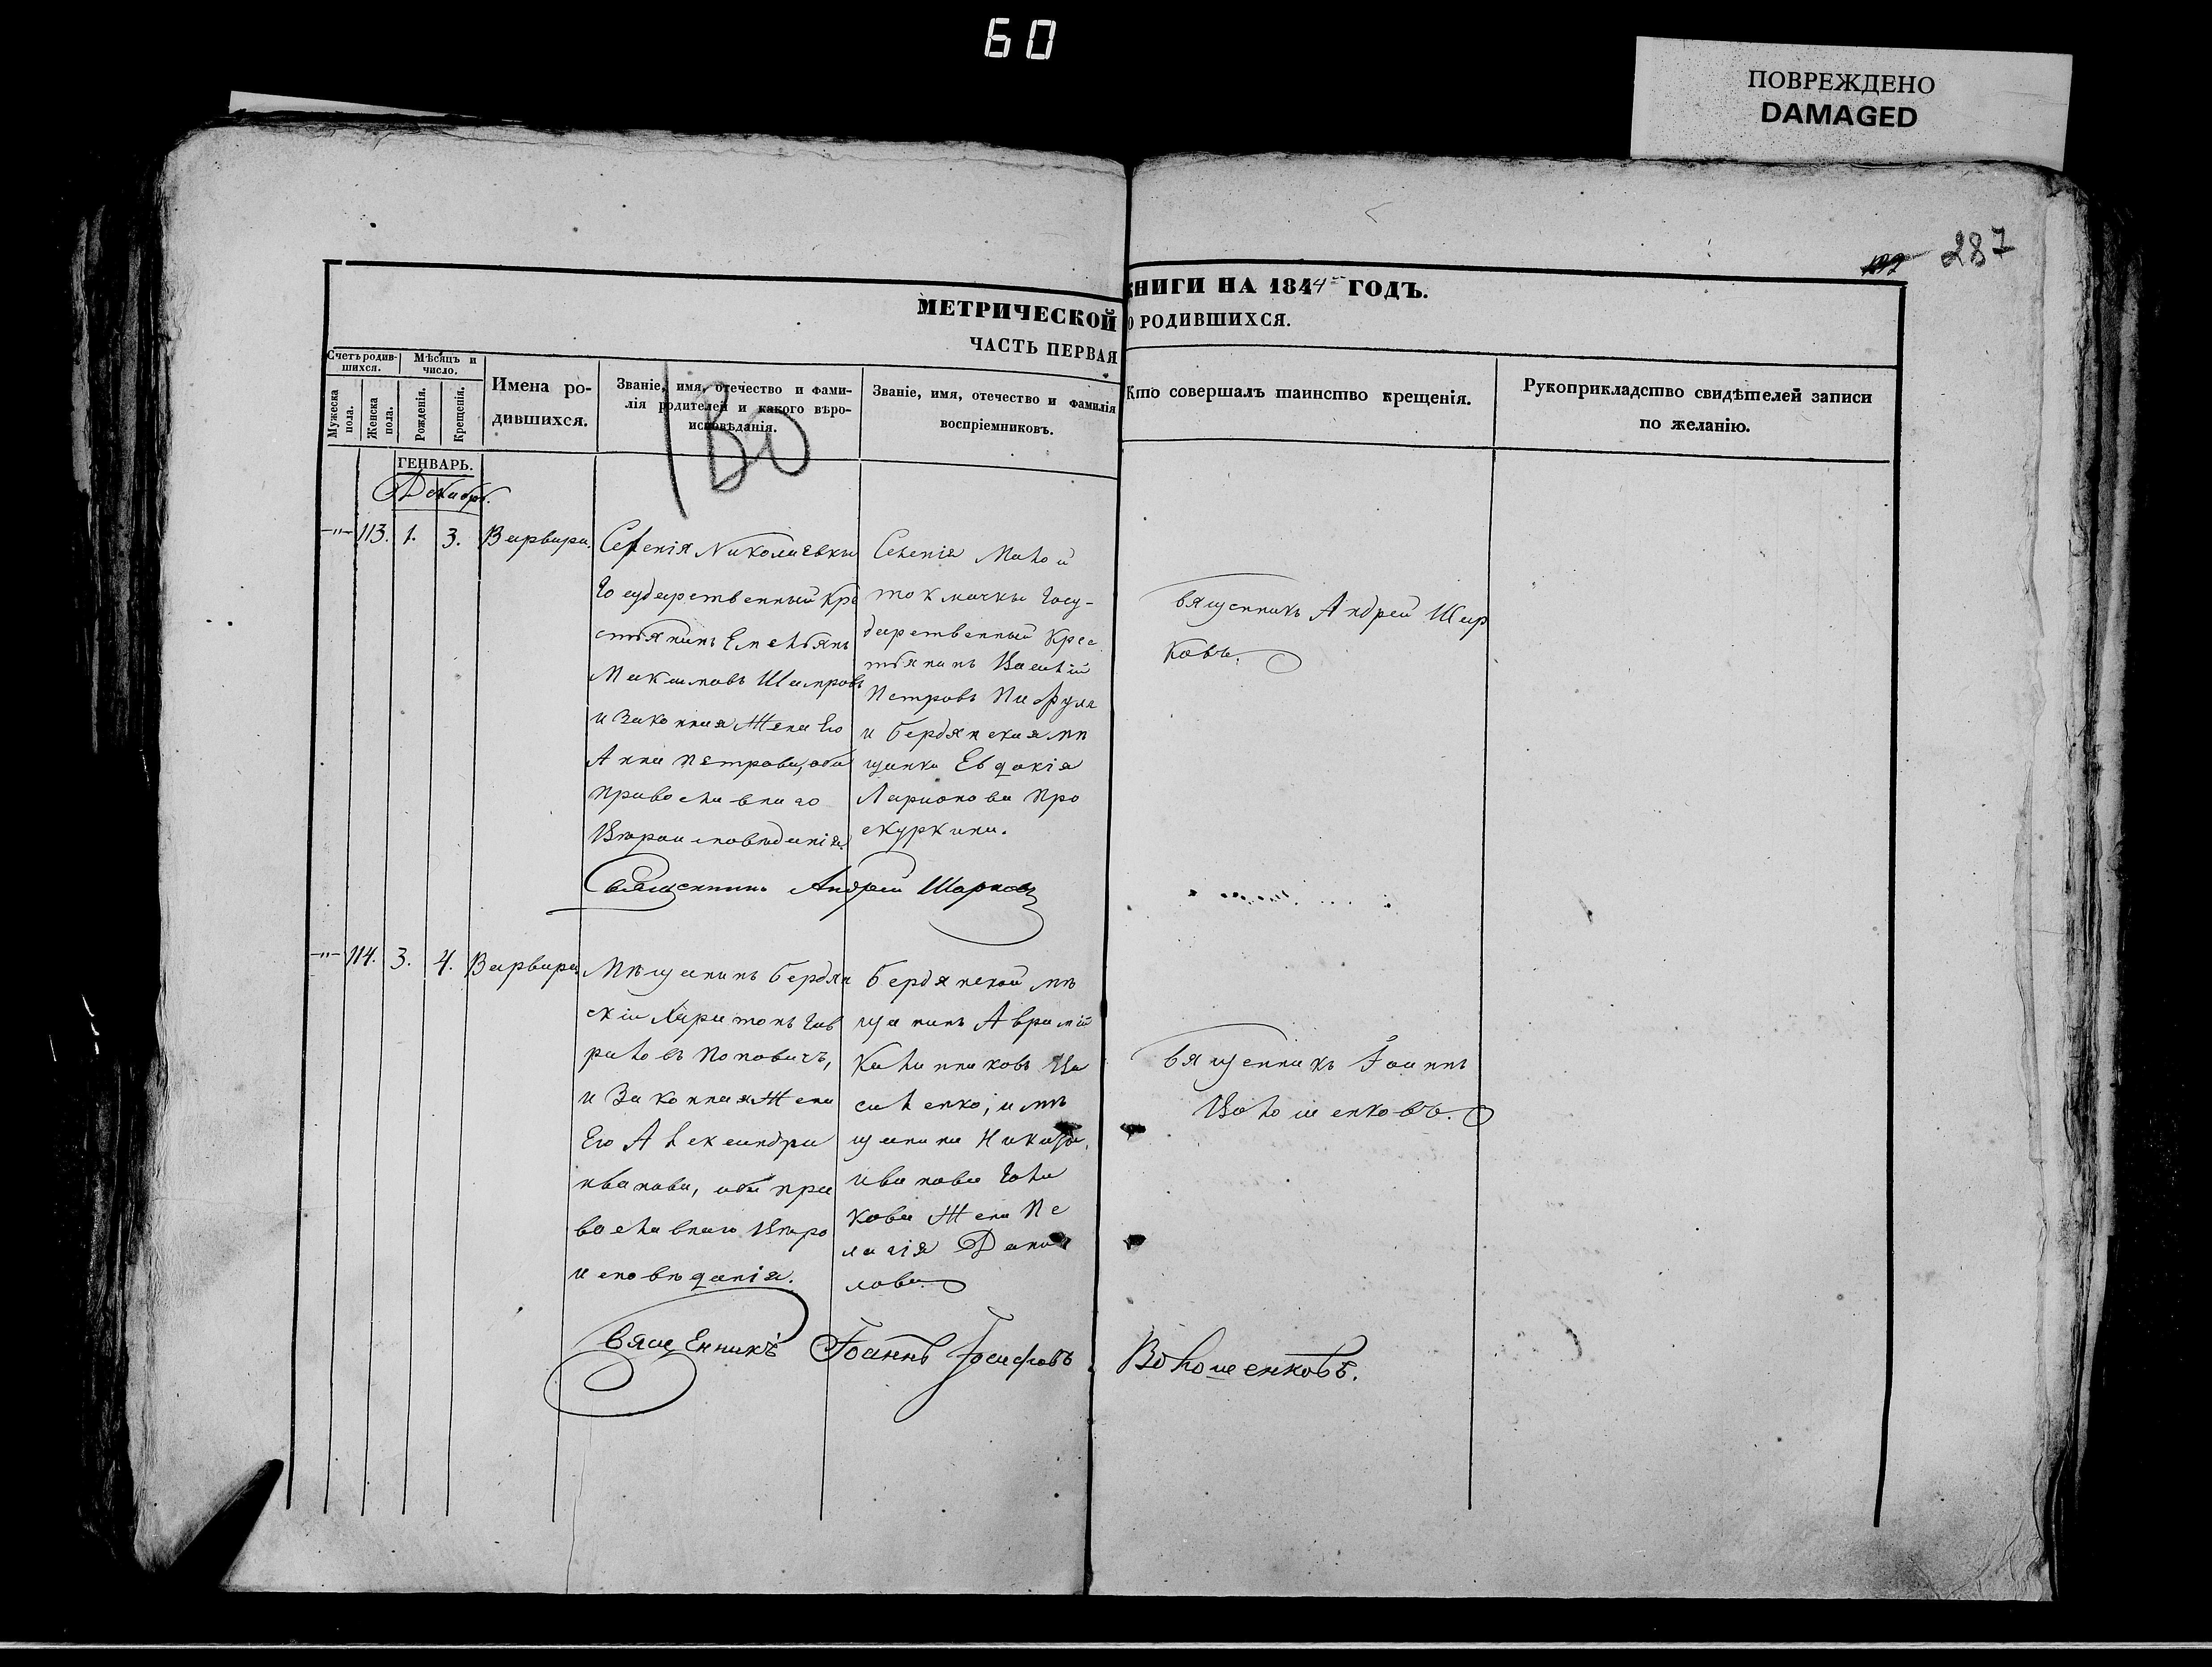 60
ПОВРЕЖДЕНО
DAMAGED
287
МЕТРИЧЕСКОЙ КНИГИ НА 1844 ГОДЪ.
ЧАСТЬ ПЕРВАЯ О РОДИВШИХСЯ.
Счетъ родив-
шихся.
Мужеска пола.
Женска пола.
Мѣсяцъ и
число.
Рожденія.
Крещенія.
Имена ро-
дившихся.
Званіе, имя, отечество и фами-
лія родителей и какого вѣро-
исповѣданія.
Званіе, имя, отечество и фамилія
воспріемниковъ.
Кто совершалъ таинство крещенія.
Рукоприкладство свидѣтелей записи
по желанію.
ГЕНВАРЬ.
Декабрь.
-"- 113. 1. 3. Варвара.
Селенія Николаевки
Государственный Кре
стьянинъ Емельянъ
Максимовъ
и Законная Жена Его
Анна Петрова, оба
православнаго
Вѣроисповѣданія.
Селенія Малой
токмачки Госу-
дарственный Крес
тьянинъ Василій
Петровъ
и бердянская мѣ
щанка Евдокія
Ларионова Про
скуркина.
Священникъ Андрей Шар
ковъ.
Священникъ Андрей Шарковъ
-"- 114. 3. 4. Варвара
Мѣщанинъ бердян
скій Харитонъ Гав
риловъ Поповичъ,
и Законная Жена
Его Александра
Иванова, оба пра
вославнаго Вѣро
исповѣданія.
бердянской мѣ
щанинъ Аврамій
Калинниковъ Ва
силенко, и мѣ
щанина Никиты
Иванова Голи
кова Жена Пе
лагія Дани
лова.
Священникъ Іоаннъ
Волошенковъ.
Священникъ Іоаннъ Іосифовъ Волошенковъ.